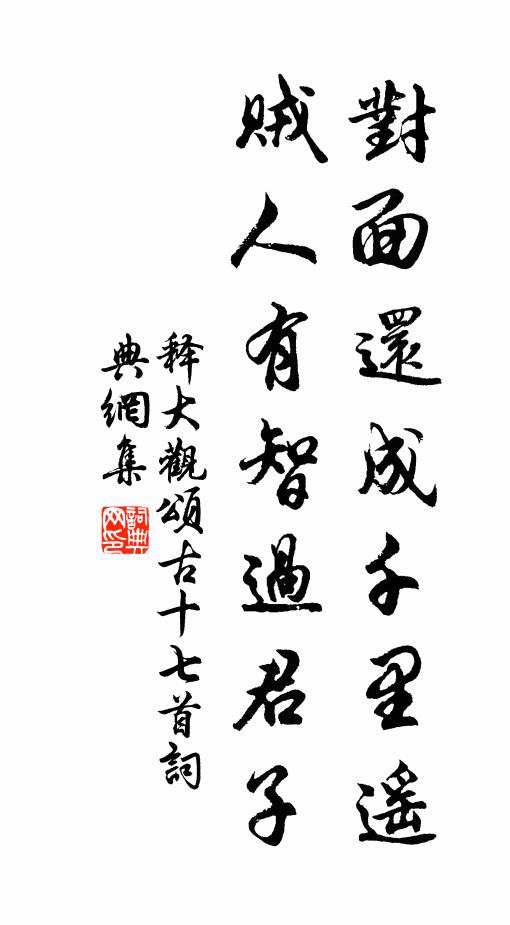 對面還成千里遥
賊人有智過君子
释大觀頌古十七首詞
典網集
詞典網印